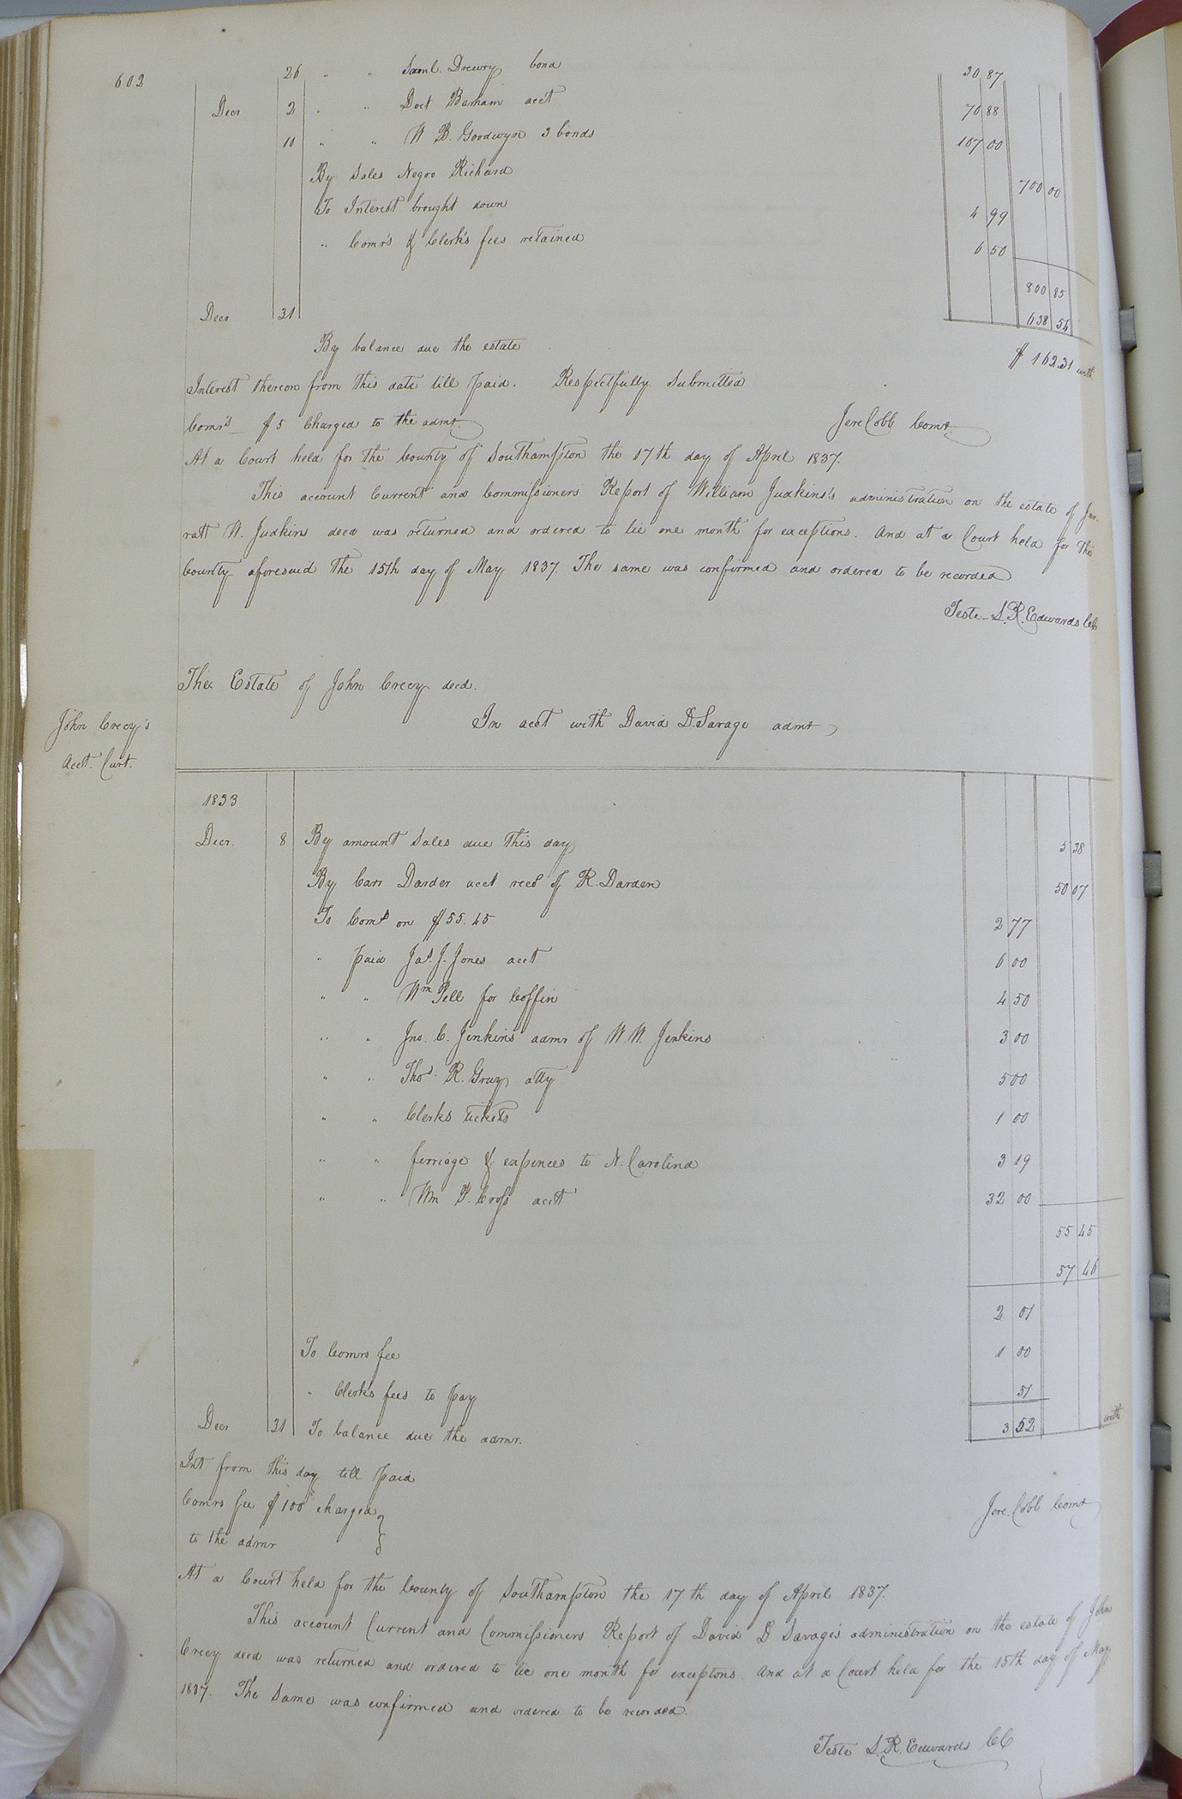 602
26 " " Saml. Drewry bond 30 87
Decr 2 " " Doct Barham acct 70 88
10 " " W B. Goodwyn 3 bonds 107 00
By Sales Negro Richard 700 00
To Interest brought down 4 99
" Comr's & Clerk's fees retained 6 50
800 85
Decr 31 638 54
By balance due the estate $ 162.31 with
Interest thereon from this date till paid. Respectfully Submitted
Comr's $5 Charged to the admr. Jere Cobb Comr
At a Court held for the County of Southampton the 17th day of April 1837.
This account Current and Commissioners Report of William Judkins's administration on the estate of Jar-
ratt W. Judkins decd was returned and ordered to lie one month for exceptions. And at a Court held for the
County aforesaid the 15th day of May 1837. The same was confirmed and ordered to be recorded
Teste S. R. Edwards CC
The Estate of John Crecy decd.
In acct with David D. Savage admr
John Crecy's
Acct. Curt.
1833
Decr. 8 By amount Sales due this day 5 38
By Carr Darder acct recd of R. Darden 50 07
To Coms on $55.45 2 77
" paid Jas. J. Jones acct 6 00
" " Wm Pell for Coffin 4 50
" " Jno. C. Jenkins admr of W. W. Jenkins 3 00
" " Thos. R. Gray atty 5 00
" " Clerks tickets 1 00
" " ferriage & expences to N. Carolina 3 19
" " Wm P. Cross acct 32 00
55 45
57 46
2 01
To Comrs fee 1 00
" Clerks fees to pay 51
Decr 31 To balance due the admr. 3 52 with
Int from this day till paid
Comrs fee $1 00 charged Jere. Cobb Comr
to the admr
At a Court held for the County of Southampton the 17th day of April 1837.
This account Current and Commissioners Report of David D Savage's administration on the estate of John
Crecy decd was returned and ordered to lie one month for exceptons. And at a Court held for the 15th day of May
1837. The Same was confirmed and ordered to be recorded.
Teste S. R. Edwards CC